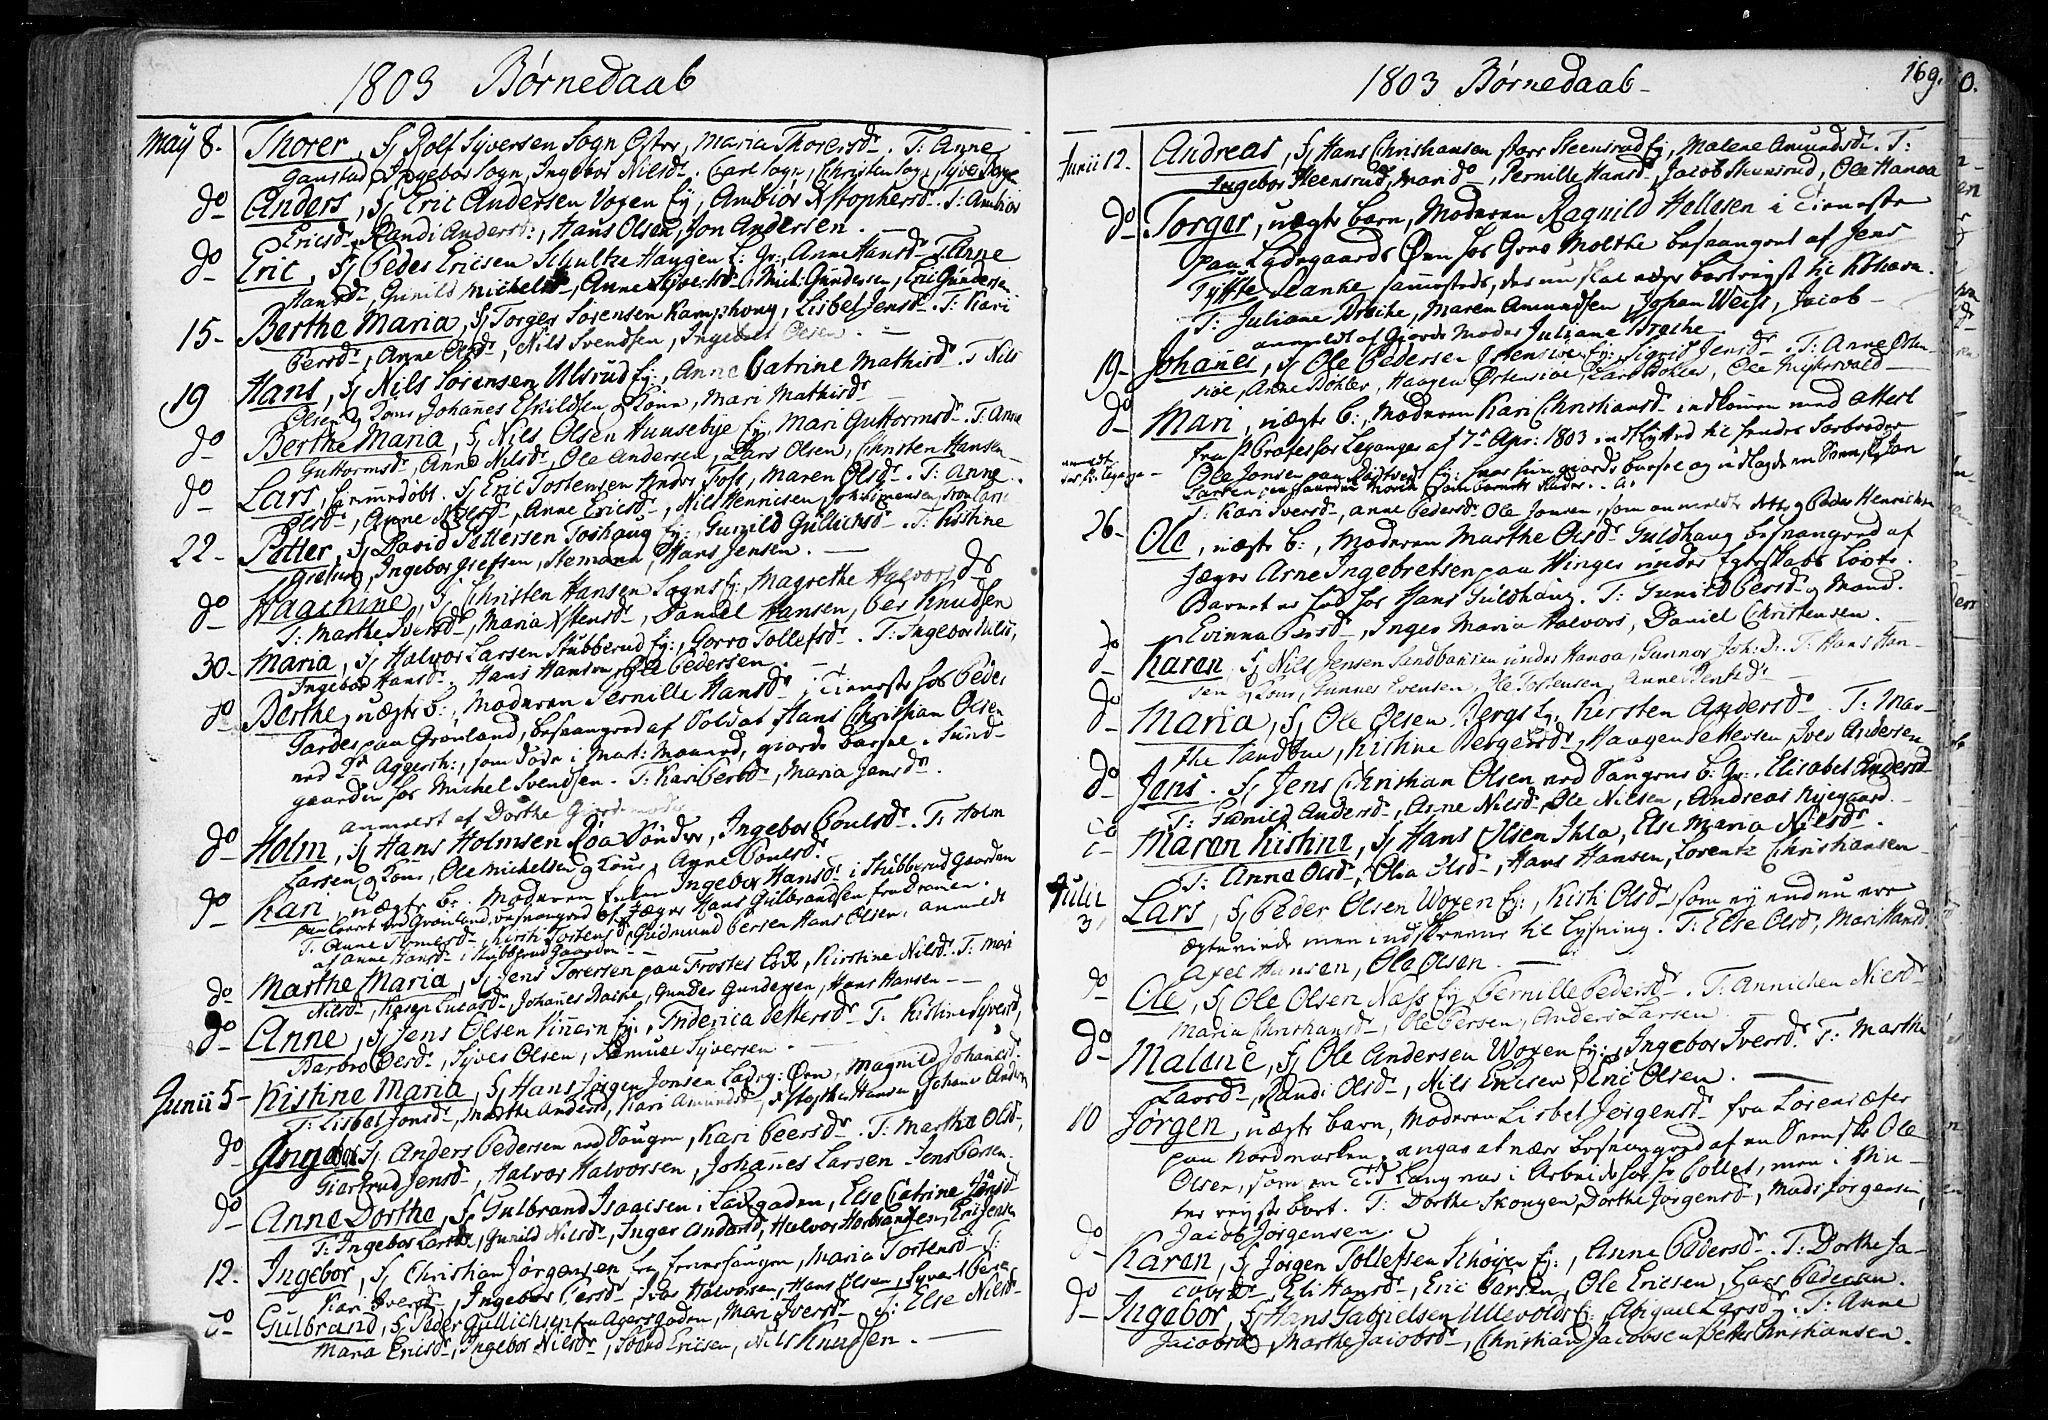 1803 Børnedaab
May 8. Thorer, F Rolf Syversen Sogn Østre, Maria Thorersd. T: Anne
Ganstad, Ingebor Sogn, Ingebor Nilsd., Carl Sogn, Christen Sogn, Syver
do Anders, F Eric Andersen Voxen Ey, Ambiør T: Ambiør
Ericsd., Randi Andersd., Hans Olsen, Jon Andersen.
do Eric, F Peder Ericsen Schultz Haugen L: Gr:, Anne Hansd. T: Anne
Hansd., Gunild Michelsd., Anne Syversd., Mich: Gundersen, Eric Gundersen
15- Berthe Maria, F Torger Sørensen Kamphoug, Lisbet Jensd. T: Kari
Persd., Anne Olsd., Nils Svendsen, Ingebret Olsen.
19 Hans, F Nils Sørensen Ulsrud Ey:, Anne Catrine Mathisd. T Nils
Olsen og Kone, Johannes Eskildsen og Kone, Mari Mathisd.
do Berthe Maria, F Nils Olsen Huusebye Ey:, Mari Guttormsd. T: Anna
Guttormsd., Anne Nilsd., Ole Andersen, Lars Olsen, Christen Hansen
do Lars, hjemmedøbt. F Eric Tostensen under Foss, Maren Olsd. T: Anne
Olsd., Anne Nilsd., Anne Ericsd., Nils Henricsen, Joh: Simensen,
22- Petter, F David Pettersen Toshaug Ey:, Gunild Gullichsd. T: Kistine
Ingebor Hans Jensen.
do F Christen Hansen Sogns Ey:, Magrethe Halvorsd.
T: Marthe Iversd., Maria Daniel Hansen, Per Knudsen
30- Maria, F Halvor Larsen Stubberud Ey:, Gorro Tollefsd. T: Ingebor
Ingebor Hansd., Hans Hansen, Ole Pedersen.
do Berthe, uægte b:, Moderen Pernille Hansd. i Tieneste hos Peder
paa Grønland, besvangred af Soldat Hans Christian Olsen
ved Aggersh:, som døde i Mart: Maaned, giorde barsel i Sund-
gaarden hos Michel Svendsen. T: Kari Persd., Maria Jensd.
anmeldt af Dorthe Giordemoder
do Holm, F Hans Holmsen Røa Søndre, Ingebor Poulsd. T: Holm
Larsen og Kone, Ole Michelsen og Kone, Anne Poulsd.
do Kari, uægte b:, Moderen Enken Ingebor Hansd. i Stubberud Gaarden
ved Grønland, besvangred af Jæger Hans Gulbrandsen fra Dramen.
T: Anne Kirsti Tostensd., Gudmund Persen, Hans Olsen, anmeldt
af Anne Hansd. i Stubberud Gaarden
do Marthe Maria, F Jens Torersen paa Frostes Lök, Kirstine Nilsd. T: Mari
Nilsd., Karen Lucasd., Johannes Gunder Gundersen, Hans Hansen
do Anne, F Jens Olsen Vinnern Ey:, Friderica Pettersd. T: Kistine Syversd.
Barbro Olsd., Syver Olsen, Samuel Syversen.
Junii 5- Kistine Maria, F Hans Jørgen Jonsen Ladeg: Øen, Magnild Johansd.
T: Lisbet Jonsd., Marthe Andersd., Kari Amundsd., Hansen, Johannes Andersen
do Ingebor F Anders Pedersen ved Saugen, Kari Peersd. T: Marthe Olsd.
Giertrud Jensd., Halvor Halvorsen, Johannes Larsen, Jens Persen.
do Anne Dorthe, F Gulbrand Isaacsen i Lakegaden, Else Catrine Jansd.
T: Ingebor Larsd., Gunild Nilsd., Inger Andersd., Halvor Herbrandsen, Eric Jensen
12- Ingebor, F Christian Jørgensen fra Maria Tostensd. T:
Kari Iversd., Ingebor Persd., Iver Halvorsen, Hans Olsen, Syvert Peersen
do Gulbrand, F Peder Gullichsen fra Agersgaden, Mari Iversd. T: Else Nilsd.
Maria Ericsd., Ingebor Nilsd., Svend Ericsen, Nils Knudsen.
1803 Børnedaab
169.
Junii 12. Andreas, F Hans Christiansen store Steensrud Ey, Malene Amundsd. T:
Ingebor Steensrud, Mari do, Pernille Hansd., Jacob Steensrud, Ole Hanoa
do Torger, uægte barn, Moderen Ragnild Hellesen i Tieneste
paa Ladegaards Øen hos Grev Molthe besvangret af Jens
sammesteds, der nu skal være bortrejst til Kbhavn.
T: Juliane Maren Amundsen, Johan Weiss, Jacob
anmeldt af Giorde Moder Juliane
19- Johannes, F Ole Pedersen Østensiøe Ey:, Sigrid Jensd. T: Anne Østen-
siøe, Anne Bøhler, Haagen Østensiøe, Lars Bøhler, Ole
do Mari, uægte b:, Moderen Kari Christiansd. indkommen med Attest
fra Hr Professor Leganger af 7de Apr: 1803 indflytted til hendes Sødreber
Ole Jonsen paa Ey: hvor hun giorde barsel og udlagde en Svensk, Jan
Larsen
T: Kari Iversd., Anne Pedersd., Ole Jonsen, som anmeldte dette, og Peder Henricsen
26- Ole, uægte b:, Moderen Marthe Olsd. Guldhaug besvangred af
Jæger Arne Ingebretsen paa Winger under Egteskabs Løvte.
Barnet er fød hos Hans Guldhaug. T: Gunild Persd. og Mand.
Persd., Inger Maria Halvors, Daniel Christensen.
do Karen F Nils Jensen Sandbakken under Hanoa, Gunnor Joh: D. T: Hans Han-
sen og Kone, Gunner Evensen, Ole Tostensen, Anne
do Maria, F Ole Olsen Bergs Ey:, Kirsten Andersd. T: Mar-
the Kistine Bergersd., Haagen Pettersen, Iver Andersen
do Jens. F Jens Christian Olsen ved Saugene b: Gr:, Elisabet Andersd.
T: Gunild Andersd., Anne Nilsd., Ole Nilsen, Andreas Nyegaard.
do Maren Kistine, F Hans Olsen Ihla, Else Maria Nilsd.
T: Anne Olsd., Olia Olsd., Hans Hansen, Lorentz Christiansen
Julii 3, Lars, F Peder Olsen Woxen Ey:, Kisti Olsd., som ey endnu ere
ægteviede men indskrevne til Lysning. T: Else Olsd., Mari Hansd.
Axel Hansen, Ole Olsen.
do Ole, F Ole Olsen Næss Ey Pernille Pedersd. T: Annichen Nielsd.
Maria Christiansd., Ole Persen, Anders Larsen.
do Malene, F Ole Andersen Woxen Ey:, Ingebor Iversd. T: Marthe
Larsd., Randi Olsd., Nils Ericsen, Eric Olsen.
10 Jørgen, uægte barn, Moderen Lisbet Jørgensd. fra Lørensæter
paa Nordmarken, angav at være besvangred af en Svensk Ole
Olsen, som en Tid lang var i Arbeide hos Hr Collet, men i Vin-
ter reyste bort. T: Dorthe Skougen, Dorthe Jørgensd., Mads Jørgensen,
Jacob Jørgensen.
do Karen, F Jørgen Tollefsen Schøyen Ey:, Anne Pedersd. T: Dorthe Ja-
cobsd., Eli Hansd., Eric Larsen, Ole Ericsen, Lars Pedersen.
do Ingebor, F Hans Gabrielsen Ullevolds Ey:, Abigael Larsd. T: Anne
Jacobsd., Marthe Jacobsd., Christian Jacobsen, Petter Christiansen.